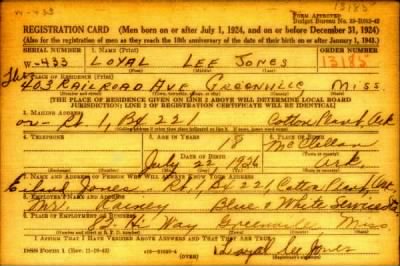 W-433
13185
FORM APPROVED
Budget Bureau No.
REGISTRATION CARD (Men born on or after July 1, 1924, and on or before December 31, 1924)
(Also for the registration of men as they reach the 18th anniversary of the date of their birth on or after January 1, 1943.)
SERIAL NUMBER
1. NAME (Print)
ORDER NUMBER
W-433
LOYAL LEE JONES
13185
(First) (Middle) (Last)
2. PLACE OF RESIDENCE (Print)
403 RAILROAD AVE GREENVILLE MISS.
[THE PLACE OF RESIDENCE GIVEN ON LINE 2 ABOVE WILL DETERMINE LOCAL BOARD
JURISDICTION; LINE 2 OF REGISTRATION CERTIFICATE WILL BE IDENTICAL]
3. MAILING ADDRESS
or - Rt 1, Bx 221, Cotton Plant, Ark
4. TELEPHONE
5. AGE IN YEARS
18
McClellan
DATE OF BIRTH
July 22 1926
Ark.
7. NAME AND ADDRESS OF PERSON WHO WILL ALWAYS KNOW YOUR ADDRESS
Jones - Rt, 1, Bx 221, Cotton Plant, Ark.
8. EMPLOYER'S NAME AND ADDRESS
Mr. Rainey Blue & White Service Sta
9. PLACE OF EMPLOYMENT OR BUSINESS
Hi Way Greenville Miss
I AFFIRM THAT I HAVE VERIFIED ABOVE ANSWERS AND THAT THEY ARE TRUE.
DSS Form 1
(OVER)
Loyal Lee Jones